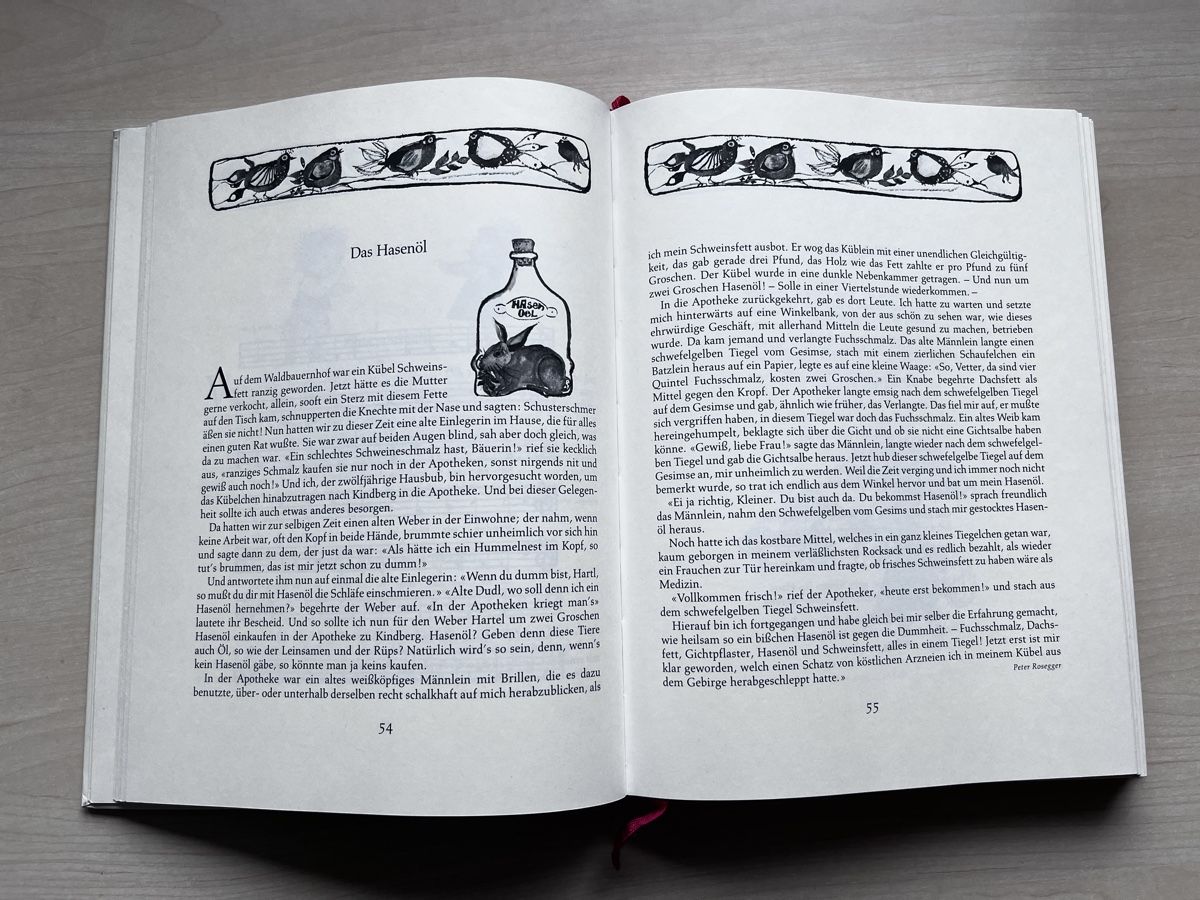 Das Hasenöl
HAsen
OeL
Auf dem Waldbauernhof war ein Kübel Schweins-
fett ranzig geworden. Jetzt hätte es die Mutter
gerne verkocht, allein, sooft ein Sterz mit diesem Fette
auf den Tisch kam, schnupperten die Knechte mit der Nase und sagten: Schusterschmer
äßen sie nicht! Nun hatten wir zu dieser Zeit eine alte Einlegerin im Hause, die für alles
einen guten Rat wußte. Sie war zwar auf beiden Augen blind, sah aber doch gleich, was
da zu machen war. «Ein schlechtes Schweineschmalz hast, Bäuerin!» rief sie kecklich
aus, «ranziges Schmalz kaufen sie nur noch in der Apotheken, sonst nirgends nit und
gewiß auch noch!» Und ich, der zwölfjährige Hausbub, bin hervorgesucht worden, um
das Kübelchen hinabzutragen nach Kindberg in die Apotheke. Und bei dieser Gelegen-
heit sollte ich auch etwas anderes besorgen.
Da hatten wir zur selbigen Zeit einen alten Weber in der Einwohne; der nahm, wenn
keine Arbeit war, oft den Kopf in beide Hände, brummte schier unheimlich vor sich hin
und sagte dann zu dem, der just da war: «Als hätte ich ein Hummelnest im Kopf, so
tut's brummen, das ist mir jetzt schon zu dumm!»
Und antwortete ihm nun auf einmal die alte Einlegerin: «Wenn du dumm bist, Hartl,
so mußt du dir mit Hasenöl die Schläfe einschmieren.» «Alte Dudl, wo soll denn ich ein
Hasenöl hernehmen?» begehrte der Weber auf. «In der Apotheken kriegt man's»
lautete ihr Bescheid. Und so sollte ich nun für den Weber Hartel um zwei Groschen
Hasenöl einkaufen in der Apotheke zu Kindberg. Hasenöl? Geben denn diese Tiere
auch Öl, so wie der Leinsamen und der Rüps? Natürlich wird's so sein, denn, wenn's
kein Hasenöl gäbe, so könnte man ja keins kaufen.
In der Apotheke war ein altes weißköpfiges Männlein mit Brillen, die es dazu
benutzte, über- oder unterhalb derselben recht schalkhaft auf mich herabzublicken, als
54
ich mein Schweinsfett ausbot. Er wog das Küblein mit einer unendlichen Gleichgültig-
keit, das gab gerade drei Pfund, das Holz wie das Fett zahlte er pro Pfund zu fünf
Groschen. Der Kübel wurde in eine dunkle Nebenkammer getragen. – Und nun um
zwei Groschen Hasenöl! – Solle in einer Viertelstunde wiederkommen. –
In die Apotheke zurückgekehrt, gab es dort Leute. Ich hatte zu warten und setzte
mich hinterwärts auf eine Winkelbank, von der aus schön zu sehen war, wie dieses
ehrwürdige Geschäft, mit allerhand Mitteln die Leute gesund zu machen, betrieben
wurde. Da kam jemand und verlangte Fuchsschmalz. Das alte Männlein langte einen
schwefelgelben Tiegel vom Gesimse, stach mit einem zierlichen Schaufelchen ein
Batzlein heraus auf ein Papier, legte es auf eine kleine Waage: «So, Vetter, da sind vier
Quintel Fuchsschmalz, kosten zwei Groschen.» Ein Knabe begehrte Dachsfett als
Mittel gegen den Kropf. Der Apotheker langte emsig nach dem schwefelgelben Tiegel
auf dem Gesimse und gab, ähnlich wie früher, das Verlangte. Das fiel mir auf, er mußte
sich vergriffen haben, in diesem Tiegel war doch das Fuchsschmalz. Ein altes Weib kam
hereingehumpelt, beklagte sich über die Gicht und ob sie nicht eine Gichtsalbe haben
könne. «Gewiß, liebe Frau!» sagte das Männlein, langte wieder nach dem schwefelgel-
ben Tiegel und gab die Gichtsalbe heraus. Jetzt hub dieser schwefelgelbe Tiegel auf dem
Gesimse an, mir unheimlich zu werden. Weil die Zeit verging und ich immer noch nicht
bemerkt wurde, so trat ich endlich aus dem Winkel hervor und bat um mein Hasenöl.
«Ei ja richtig, Kleiner. Du bist auch da. Du bekommst Hasenöl!» sprach freundlich
das Männlein, nahm den Schwefelgelben vom Gesims und stach mir gestocktes Hasen-
öl heraus.
Noch hatte ich das kostbare Mittel, welches in ein ganz kleines Tiegelchen getan war,
kaum geborgen in meinem verläßlichsten Rocksack und es redlich bezahlt, als wieder
ein Frauchen zur Tür hereinkam und fragte, ob frisches Schweinsfett zu haben wäre als
Medizin.
«Vollkommen frisch!» rief der Apotheker, «heute erst bekommen!» und stach aus
dem schwefelgelben Tiegel Schweinsfett.
Hierauf bin ich fortgegangen und habe gleich bei mir selber die Erfahrung gemacht,
wie heilsam so ein bißchen Hasenöl ist gegen die Dummheit. – Fuchsschmalz, Dachs-
fett, Gichtpflaster, Hasenöl und Schweinsfett, alles in einem Tiegel! Jetzt erst ist mir
klar geworden, welch einen Schatz von köstlichen Arzneien ich in meinem Kübel aus
dem Gebirge herabgeschleppt hatte.»
Peter Rosegger
55